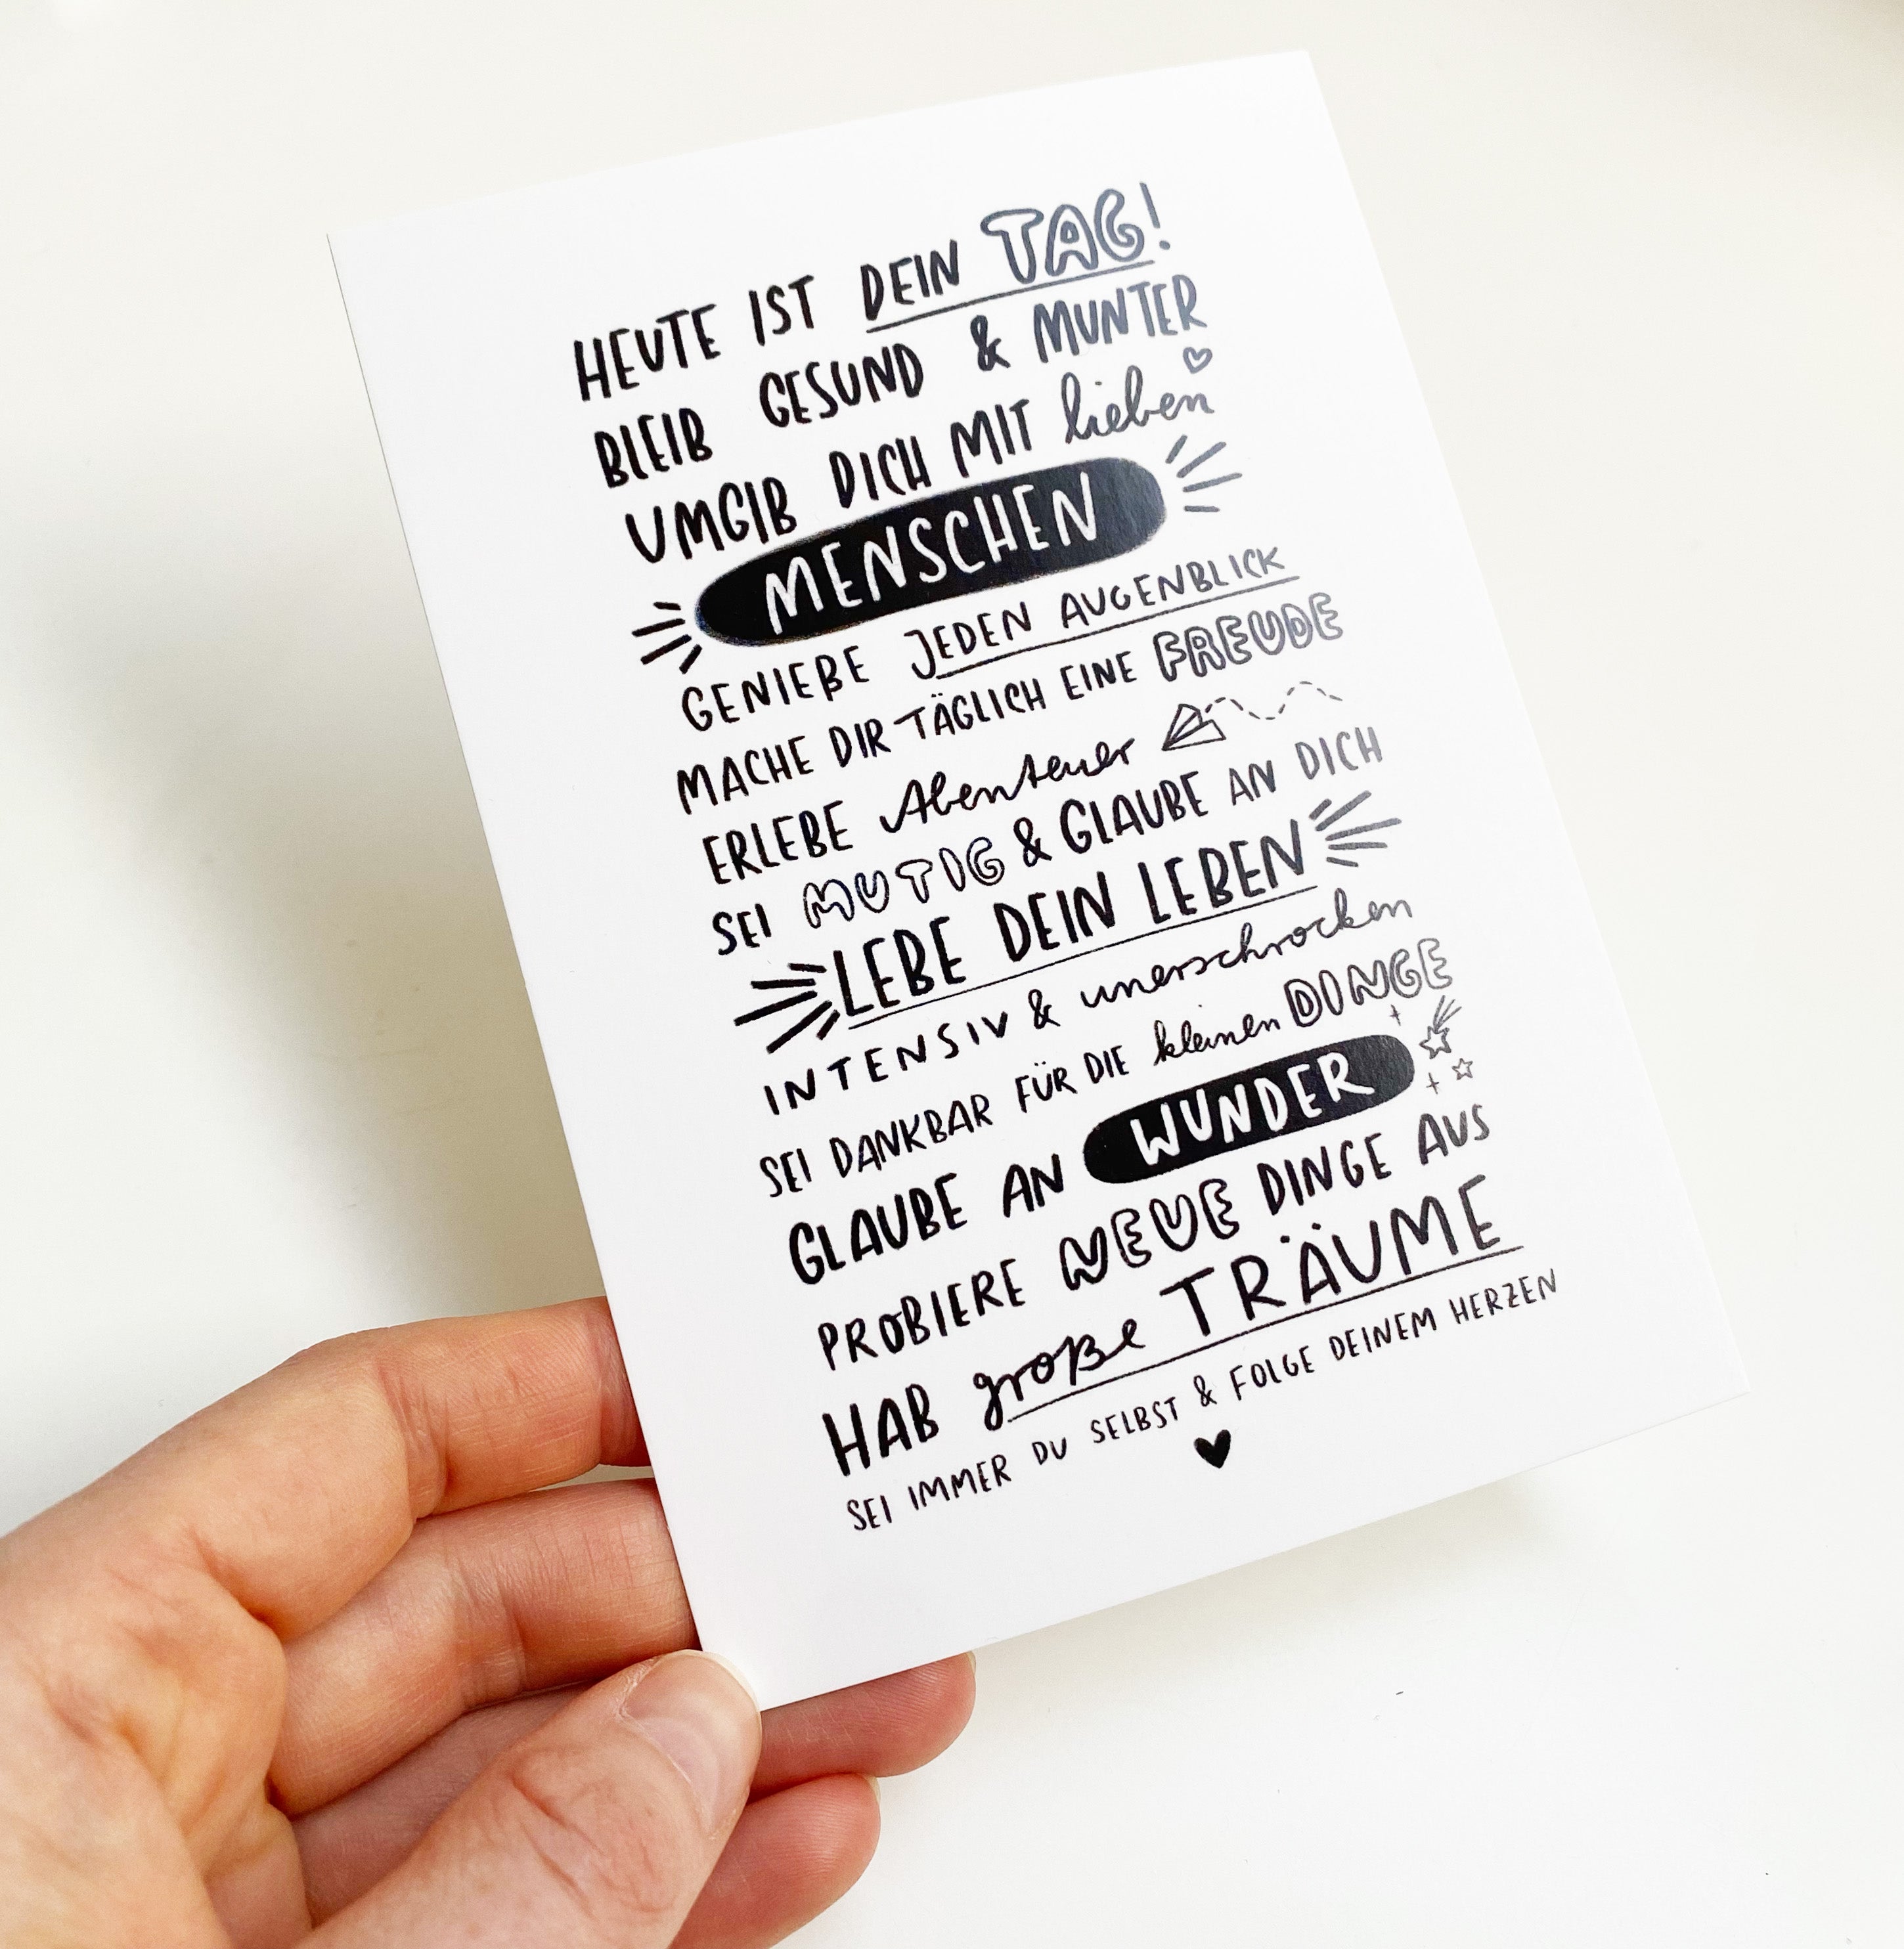 HEUTE IST DEIN TAG!
BLEIB GESUND & MUNTER
UMGIB DICH MIT lieben
MENSCHEN
GENIEßE JEDEN AUGENBLICK
MACHE DIR TÄGLICH EINE FREUDE
ERLEBE Abenteuer
SEI MUTIG & GLAUBE AN DICH
LEBE DEIN LEBEN
INTENSIV & unerschrocken
SEI DANKBAR FÜR DIE kleinen DINGE
GLAUBE AN WUNDER
PROBIERE NEUE DINGE AUS
HAB große TRÄUME
SEI IMMER DU SELBST & FOLGE DEINEM HERZEN